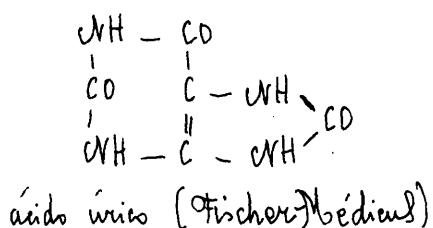 NH — CO
CO C — NH
CO
NH — C — NH
ácido úrico (Fischer-Médicus)